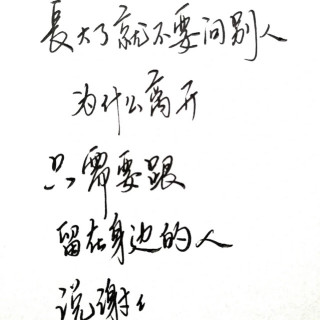 長大了就不要问别人
为什么离开
只需要跟
留在身边的人
说谢谢